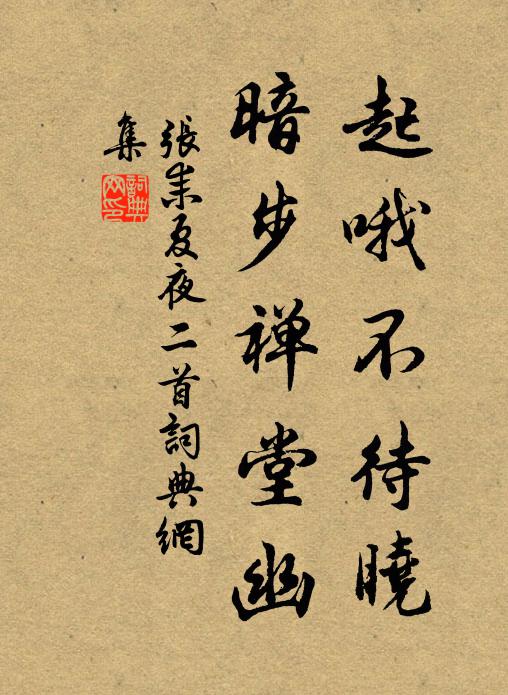 起哦不待曉
暗步禅堂幽
張耒夏夜二首詞典網
集
詞典網印